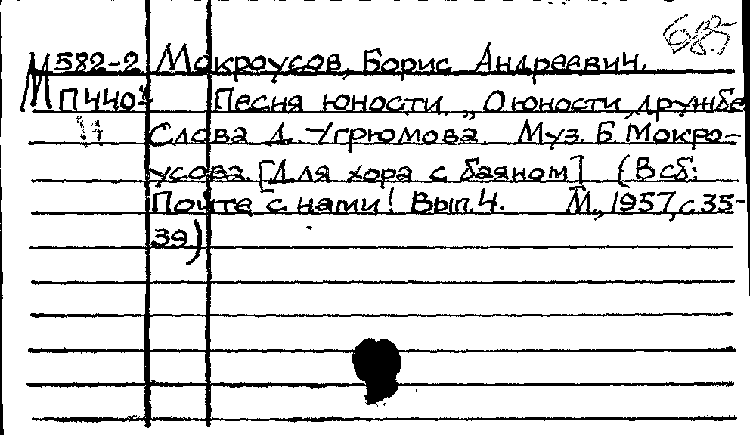 685
М 582-2 Мокроусов, Борис Андреевич.
М П440 Песня юности. „О юности, дружбе
Слова Д. Угрюмова. Муз. Б. Мокро-
усова. [Для хора с баяном] (В сб:
Пойте с нами! Вып. 4. М., 1957, с. 35-
39)